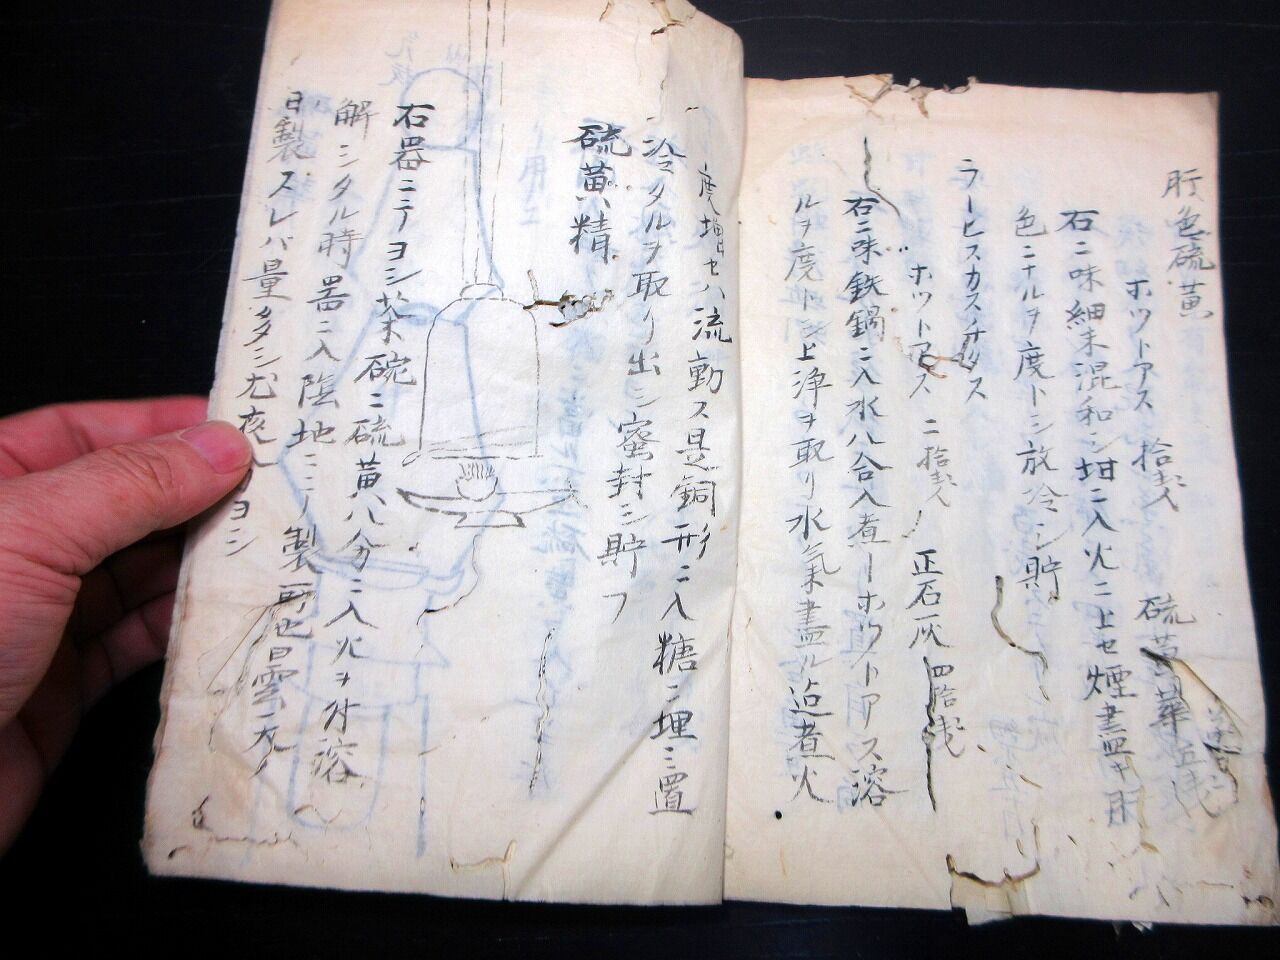 肝色硫黄
ホツトアス 拾戔 硫黄華 五戔
右二味細末混和シ坩ニ入火ニ上セ煙盡キ肝
色ニナルヲ度トシ放冷シ貯
ラーヒスカスチクス
ホツトアス 二拾戔 正石灰 四拾戔
右二味鉄鍋ニ入水八合入煮ーホツトアス溶
ルヲ度トシ上浄ヲ取リ水氣盡ル迠煮火
度増セハ流動ス是銅形ニ入糖ニ埋ミ置
冷タルヲ取リ出シ蜜封シ貯フ
硫黄精
石器ニテヨシ茶碗ニ硫黄八分ニ入火ヲ付溶
解シタル時器ニ入陰地ニ
日製スレバ量多シ尤夜ハヨシ